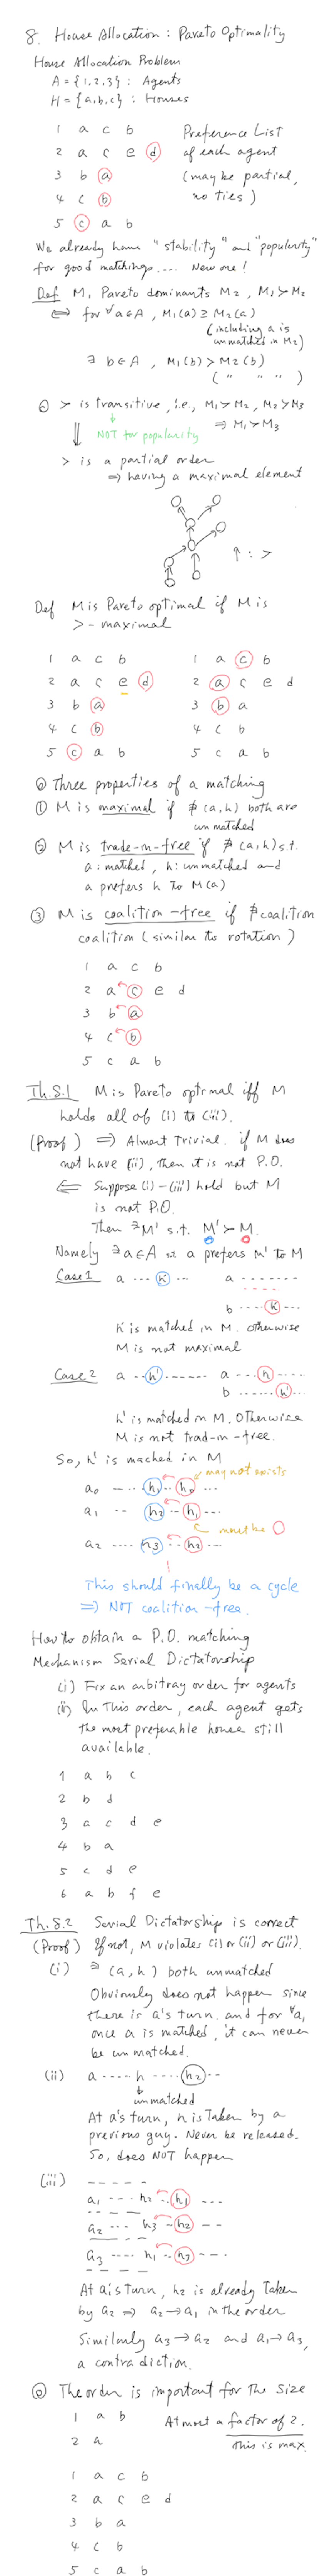 8. House Allocation : Pareto Optimality
House Allocation Problem
A = {1,2,3} : Agents
H = {a,b,c} : Houses
1 a c b Preference List
2 a c e d of each agent
3 b a (may be partial,
4 c b no ties)
5 c a b
We already have "stability" and "popularity"
for good matchings.... New one!
Def M1 Pareto dominants M2, M1 > M2
⇔ for ∀a∈A, M1(a) ≥ M2(a)
(including a is
unmatched in M2)
∃ b∈A, M1(b) > M2(b)
( " " " )
◎ > is transitive, i.e., M1>M2, M2>M3
⇒ M1>M3
NOT for popularity
> is a partial order
⇒ having a maximal element
↑ : >
Def M is Pareto optimal if M is
>- maximal
1 a c b 1 a c b
2 a c e d 2 a c e d
3 b a 3 b a
4 c b 4 c b
5 c a b 5 c a b
◎ Three properties of a matching
① M is maximal if ∄ (a,h) both are
unmatched
② M is trade-in-free if ∄ (a,h) s.t.
a : matched, h : unmatched and
a prefers h to M(a)
③ M is coalition-free if ∄ coalition
coalition (similar to rotation)
1 a c b
2 a c e d
3 b a
4 c b
5 c a b
Th.8.1 M is Pareto optimal iff M
holds all of (i) to (iii).
(Proof) ⇒) Almost Trivial. if M does
not have (ii), then it is not P.O.
⇐ Suppose (i)-(iii) hold but M
is not P.O.
Then ∃M' s.t. M' > M.
Namely ∃a∈A s.t. a prefers M' to M
Case1 a --- h' --- a - - - - - -
b ---- h' ---
h' is matched in M. otherwise
M is not maximal
Case 2 a -- h' ------ a --- h -----
b ------ h' --
h' is matched in M. Otherwise
M is not trad-in-free.
So, h' is mached in M
may not exists
a0 --- h1 -- h0 ---
a1 -- h2 -- h1 ---
must be
a2 ---- h3 -- h2 ---
This should finally be a cycle
⇒ NOT coalition-free.
How to obtain a P.O. matching
Mechanism Serial Dictatorship
(i) Fix an arbitray order for agents
(ii) In This order, each agent gets
the most preferable house still
available.
1 a b c
2 b d
3 a c d e
4 b a
5 c d e
6 a b f e
Th.8.2 Serial Dictatorship is correct
(Proof) If not, M violates (i) or (ii) or (iii).
(i) ∃ (a,h) both unmatched
Obviously does not happen since
there is a's turn. and for ∀a,
once a is matched, it can never
be unmatched.
(ii) a ---- h ---- h2 --
unmatched
At a's turn, h is Taken by a
previous guy. Never be released.
So, does NOT happen
(iii) - - - - -
a1 --- h2 -- h1 ---
a2 --- h3 -- h2 --
a3 ---- h1 -- h3 ---
At a1's turn, h2 is already Taken
by a2 ⇒ a2→a1 in the order
Similarly a3→a2 and a1→a3,
a contradiction.
◎ The order is important for The size
1 a b At most a factor of 2.
2 a This is max.
1 a c b
2 a c e d
3 b a
4 c b
5 c a b